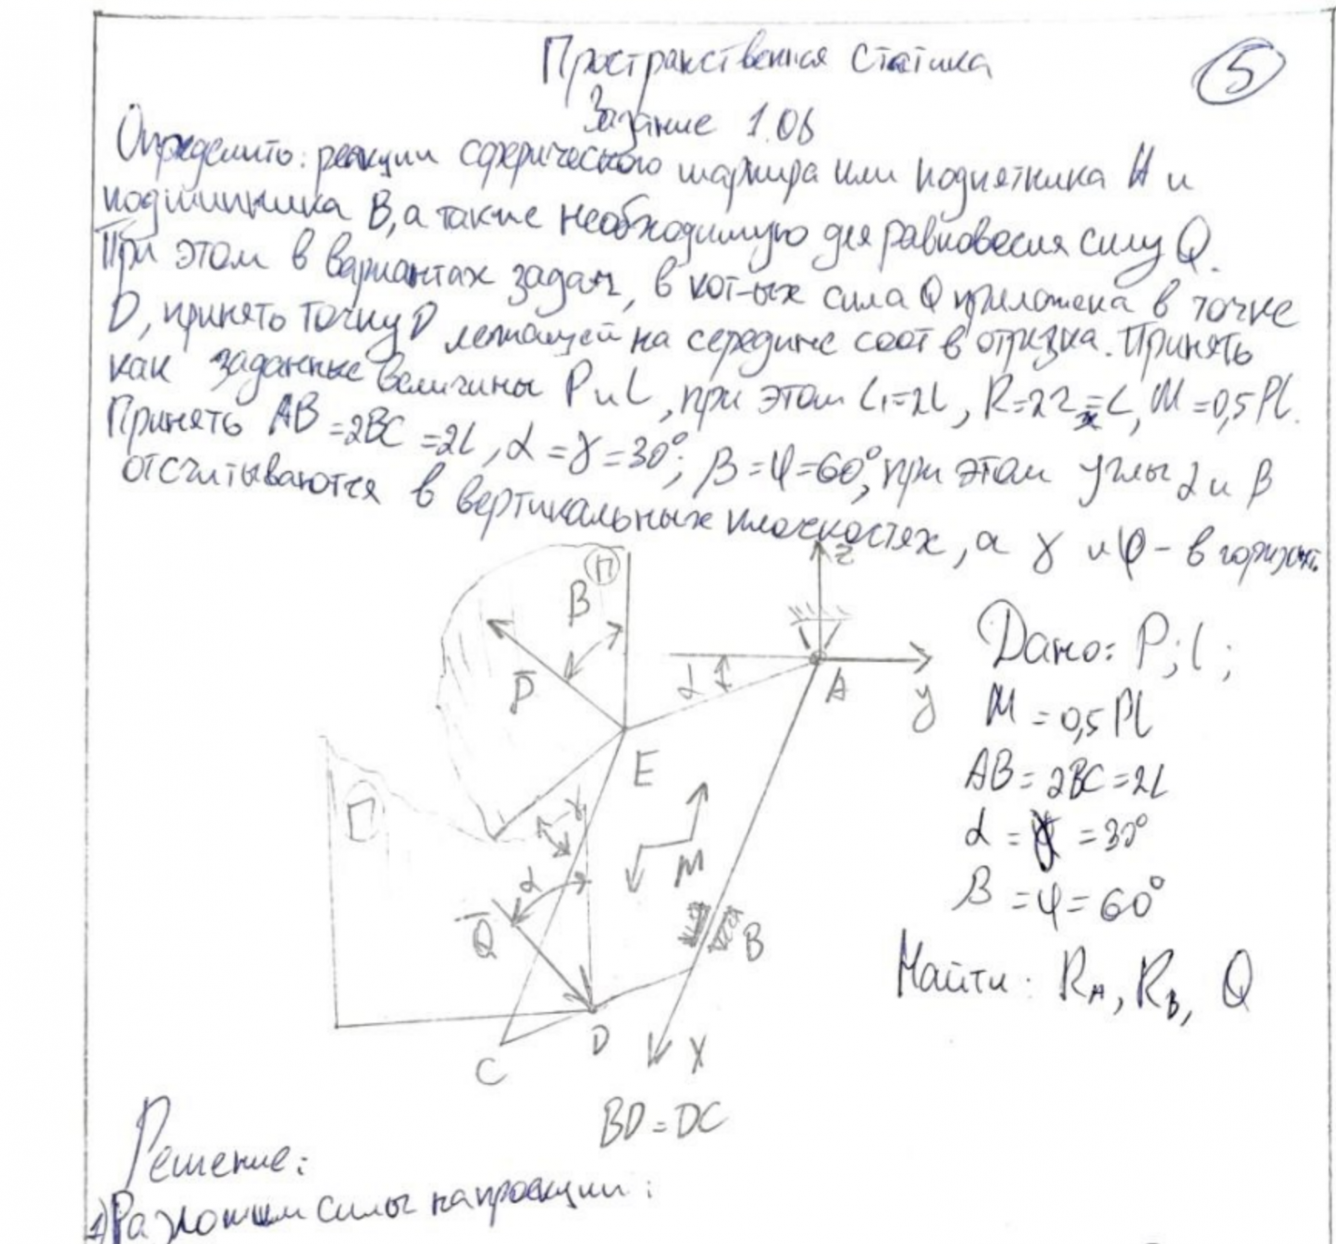 Пространственная статика
5
Задание 1.06
Определить: реакции сферического шарнира или подпятника А и
подшипника В, а также необходимую для равновесия силу Q.
При этом в вариантах задач, в кот-ых сила Q приложена в точке
D, принять точку D лежащей на середине соотв отрезка. Принять
как заданные величины P и L, при этом L1=2L, R=2r=L, M=0,5PL.
Принять AB=2BC=2L, α=γ=30°; β=φ=60°, при этом углы α и β
отсчитываются в вертикальных плоскостях, а γ и φ - в горизонт.
П
z
β
P̅
α
A
y
E
П
γ
α
M
Q̅
B
D
C
x
BD=DC
Дано: P; l;
M=0,5Pl
AB=2BC=2L
α=γ=30°
β=φ=60°
Найти: RA, RB, Q
Решение:
1) Разложим силы на проекции: